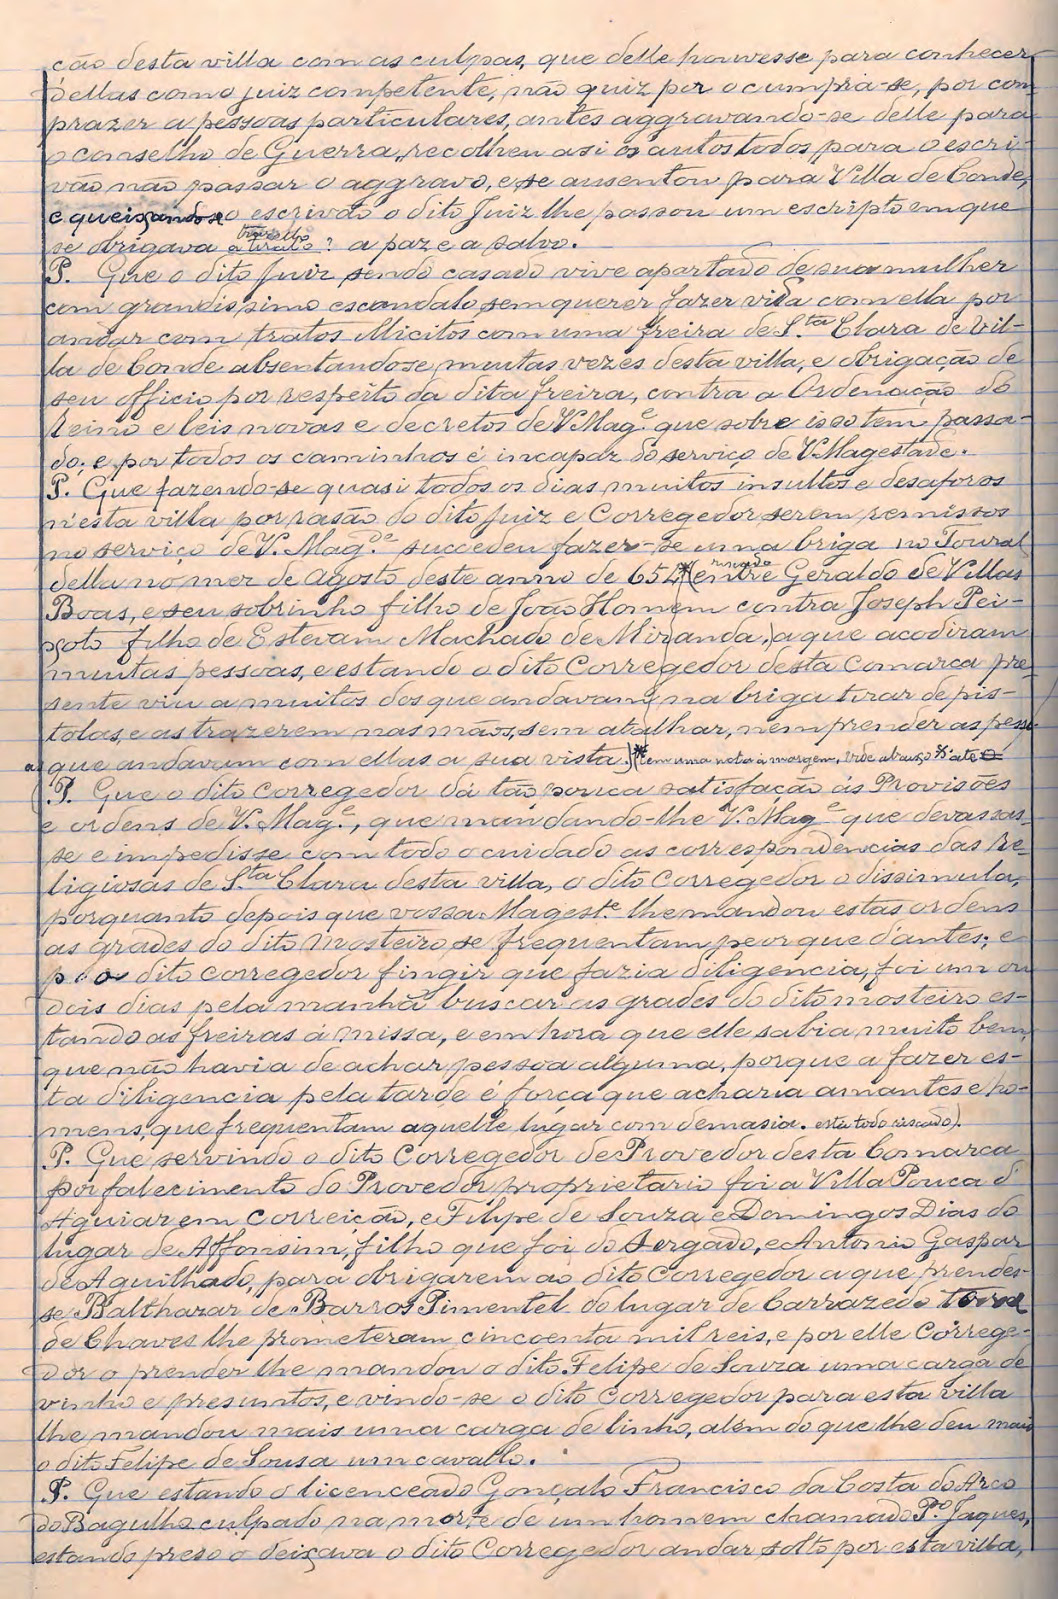 ção desta villa com as culpas, que delle houvesse para conhecer
dellas como juiz competente, não quiz por o cumpria-se, por com
prazer a pessoas particulares, antes aggravando-se delle para
o conselho de Guerra, recolheu a si os autos todos para o escri-
vão não passar o aggravo, e se ausentou para Villa de Conde,
e queixando-se o escrivão o dito Juiz lhe passou um escripto em que
se obrigava a tiralo? a paz e a salvo.
P. Que o dito Juiz sendo casado vive apartado de sua mulher
com grandissimo escandalo sem querer fazer vida com ella por
andar com tratos illicitos com uma freira de S.ta Clara de Vil-
la de Conde absentandose, muitas vezes desta villa, e obrigação de
seu officio por respeito da dita freira, contra a Ordenação do
Reino e leis novas e decretos de V. Mag.e que sobre isso tem passa-
do; e por todos os caminhos é incapaz do serviço de V. Magestade.
P. Que fazendo-se quasi todos os dias muitos insultos e desaforos
n'esta villa por rasão do dito Juiz e Corregedor serem remissos
no serviço de V. Mag.de succedeu fazer-se uma briga no Toural
della no mez de Agosto deste anno de 652 *(entre Geraldo de Villas
Boas, e seu sobrinho filho de João Homem contra Joseph Pei-
xoto filho de Estevam Machado de Miranda,) a que acodiram
muitas pessoas, e estando o dito Corregedor desta comarca pre-
sente viu a muitos dos que andavam na briga tirar de pis-
tolas, e as trazerem nas mãos, sem atalhar, nem prender as pesso
as que andavam com ellas a sua vista.) *(tem uma nota á margem, vide abaixo até
P. Que o dito Corregedor dá tão pouca satisfação ás Provisões
e ordens de V. Mag.e, que mandando-lhe V. Mag.e que devassas-
se e impedisse com todo o cuidado as correspondencias das Re-
ligiosas de S.ta Clara desta villa, o dito Corregedor o dissimula,
porquanto depois que vossa Magest.e lhe mandou estas ordens
as grades do dito Mosteiro se frequentam peor que d'antes; e
p.a o dito corregedor fingir que fazia diligencia, foi um ou
dois dias pela manhã buscar as grades do dito mosteiro es-
tando as freiras á missa, e em hora que elle sabia muito bem,
que não havia de achar pessoa alguma, porque a fazer es-
ta diligencia pela tarde é força que acharia amantes e ho-
mens, que frequentam aquelle lugar com demasia. este todo riscado).
P. Que servindo o dito Corregedor de Provedor desta Comarca
por falecimento do Provedor proprietario foi a Villa Pouca d
Aguiar em Correição, e Filipe de Souza e Domingos Dias do
lugar de Affonsim, filho que foi do Sergado, e Antonio Gaspar
de Aguilhado, para obrigarem ao dito Corregedor a que prendes-
se Balthazar de Barros Pimentel do lugar de Carrazedo
de Chaves lhe prometeram cincoenta mil reis, e por elle Correge-
dor o prender lhe mandou o dito Felipe de Souza uma carga de
vinho e presuntos, e vindo-se o dito Corregedor para esta villa
lhe mandou mais uma carga de linho, além do que lhe deu mais
o dito Felipe de Sousa um cavallo.
P. Que estando o licenceado Gonçalo Francisco da Costa do Arco
do Bagulho culpado na morte de um homem chamado P.o Jaques,
estando preso o deixava o dito Corregedor andar solto por esta villa,